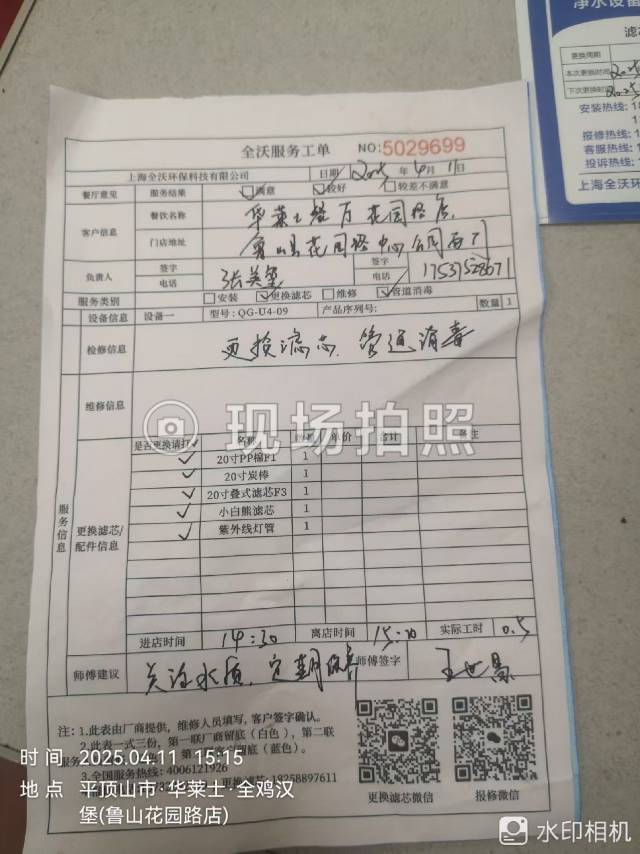 净水设备
更换周期
本次更换时间 2025
下次更换时间 2025
安装热线: 18
报修热线:
客服热线:
投诉热线:
上海全沃环
全沃服务工单 NO:5029699
上海全沃环保科技有限公司 日期 2025 年 4 月 11 日
餐厅意见 服务结果 满意 较好 较差不满意
客户信息 餐饮名称 华莱士餐厅花园路店
门店地址 鲁山县花园路中
负责人 签字 电话 张美玺 签字 电话 17537528671
服务类别 安装 更换滤芯 维修 管道消毒
设备信息 设备一 型号: QG-U4-09 产品序列号: 数量 1
检修信息 更换滤芯、管道消毒
维修信息
现场拍照
服务信息
更换滤芯/配件信息
是否更换请打✓ 名称 数量 单价 合计 备注
✓ 20寸PP棉F1 1
✓ 20寸炭棒 1
✓ 20寸叠式滤芯F3 1
✓ 小白熊滤芯 1
✓ 紫外线灯管 1
进店时间 14:30 离店时间 15:20 实际工时 0.5
师傅建议 关注水质,定期保养 师傅签字 王世昌
注: 1.此表由厂商提供,维修人员填写,客户签字确认。
2.此表一式三份,第一联厂商留底(白色),第二联
服务 留底(蓝色)。
3.全国服务热线: 4006121926
18258897611
更换滤芯微信 报修微信
时 间 2025.04.11 15:15
地 点 平顶山市·华莱士·全鸡汉
堡(鲁山花园路店)
水印相机